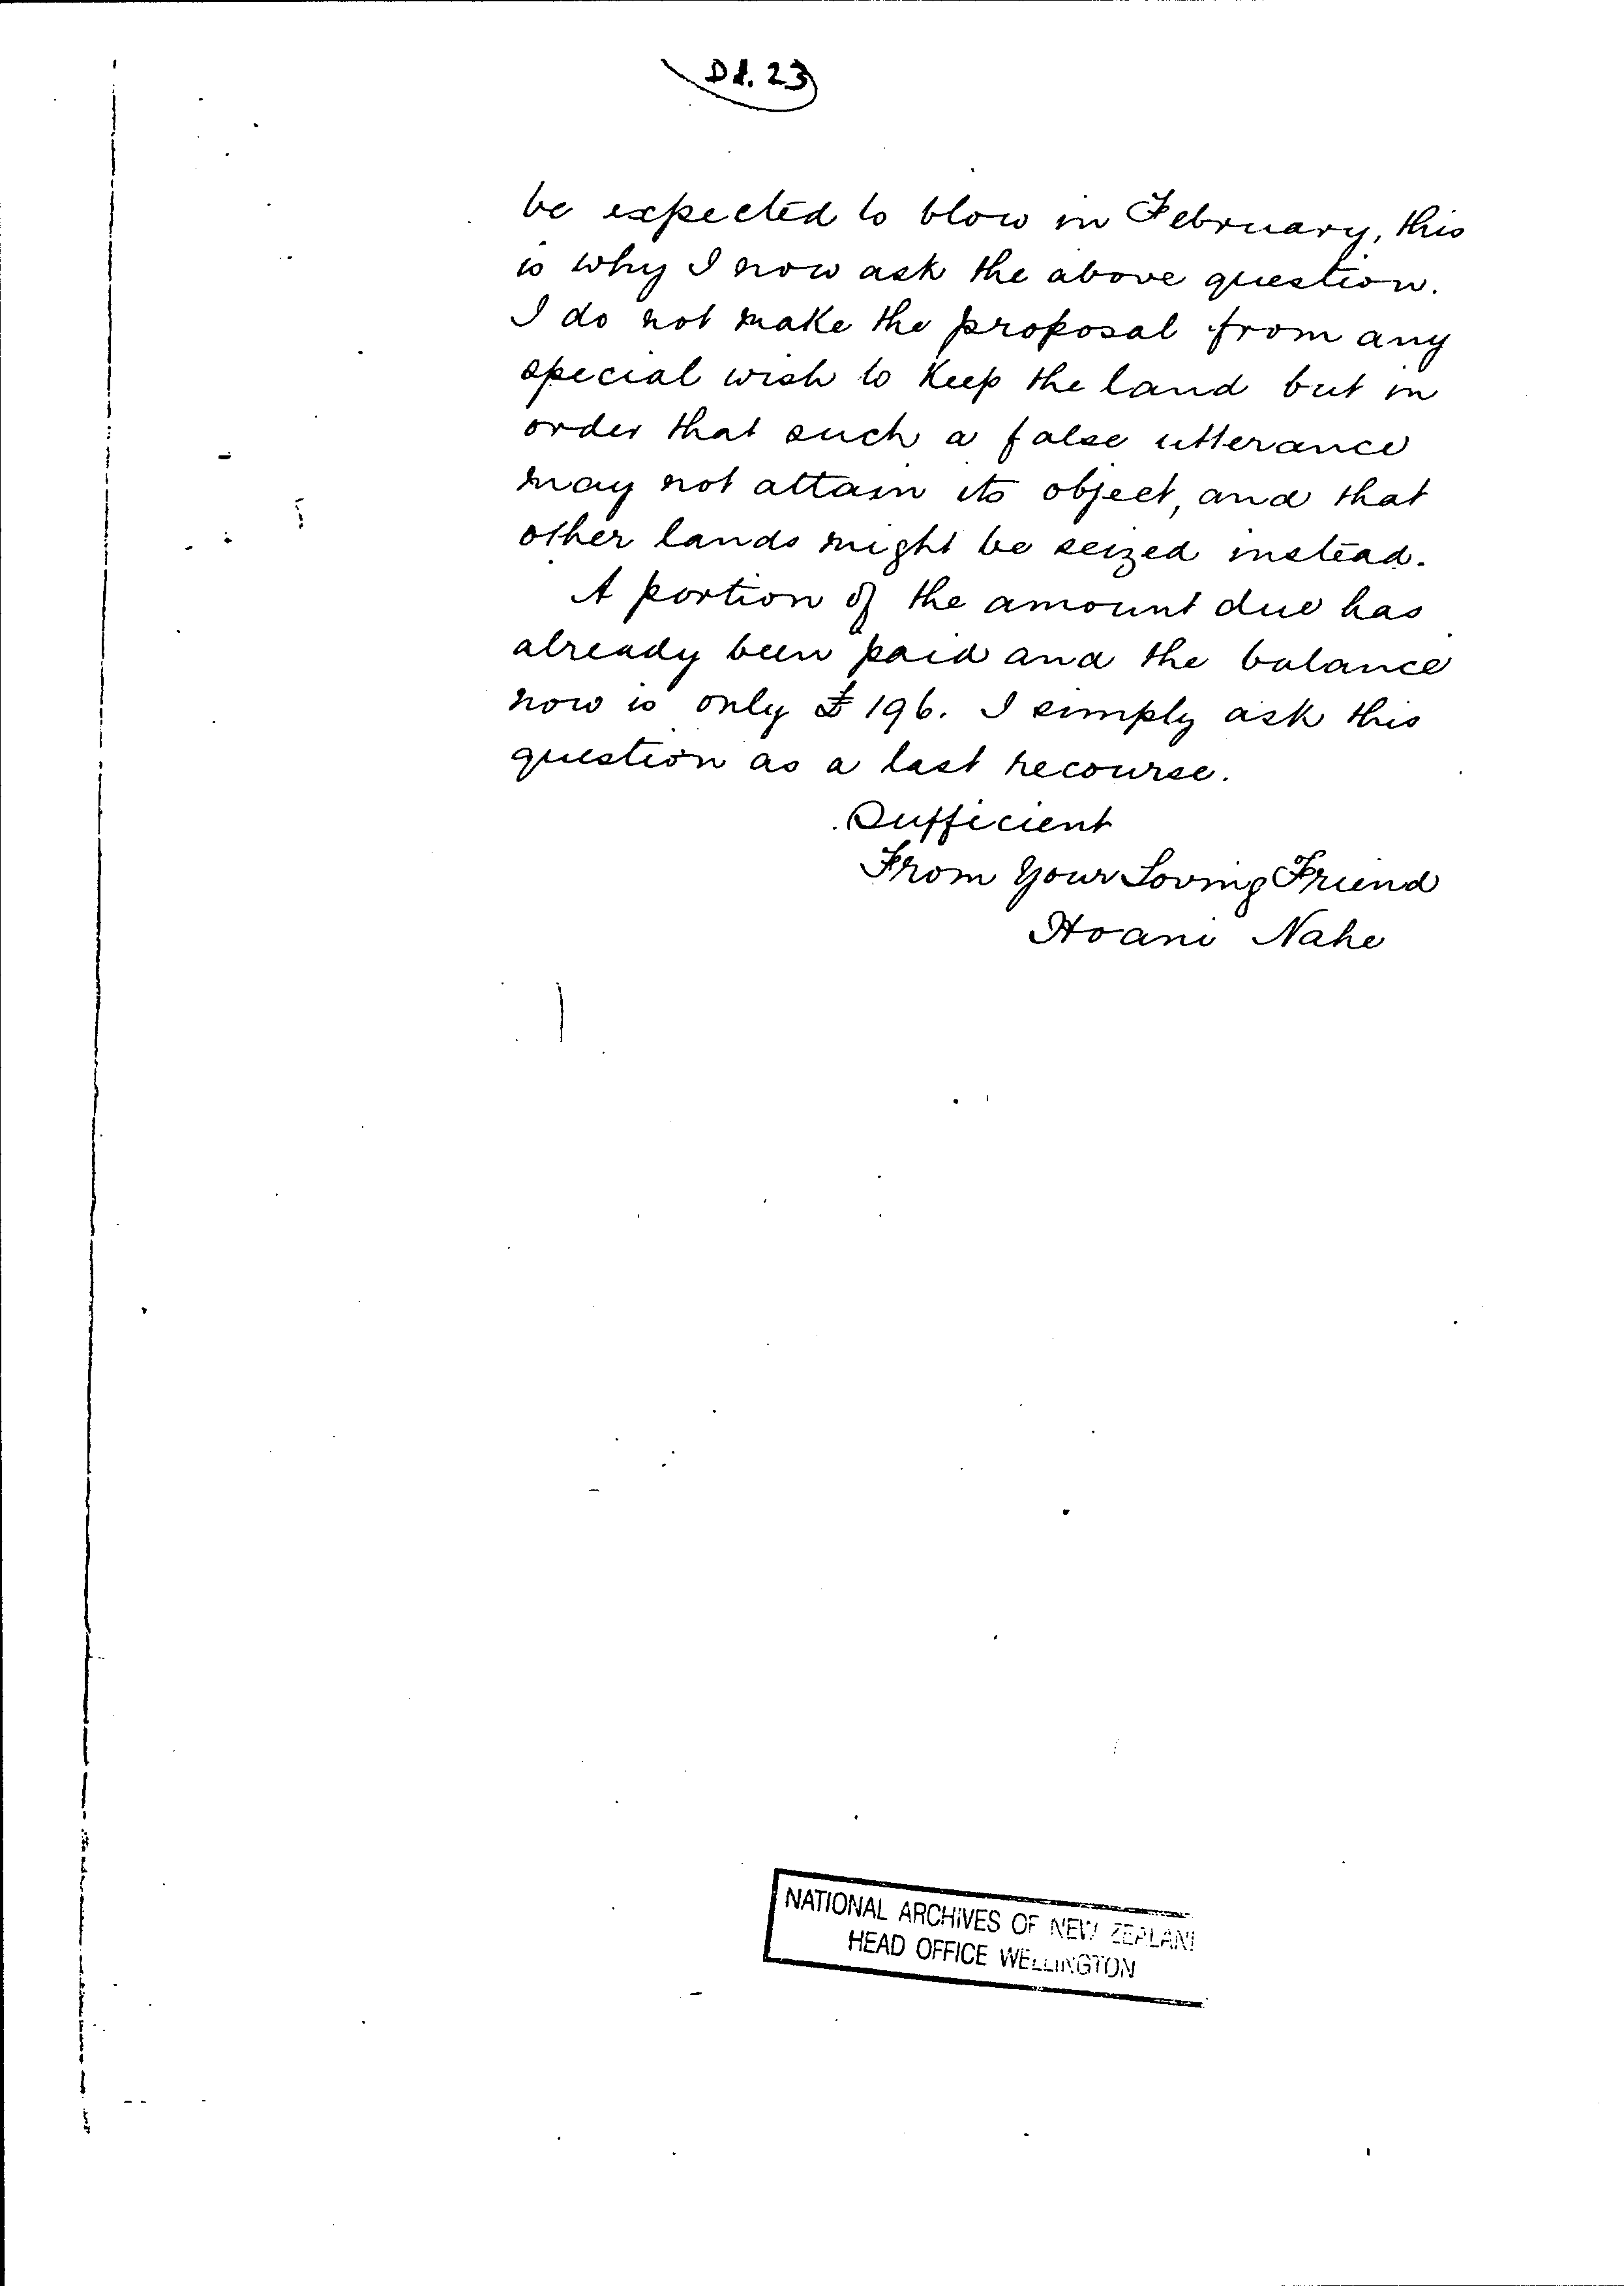 D1.23
be expected to blow in February, this
is why I now ask the above question.
I do not make the proposal from any
special wish to keep the land but in
order that such a false utterance
may not attain its object, and that
other lands might be seized instead.
A portion of the amount due has
already been paid and the balance
now is only £196. I simply ask this
question as a last recourse.
Sufficient
From Your Loving Friend
Hoani Nahe
NATIONAL ARCHIVES OF NEW ZEALAN
HEAD OFFICE WELLINGTON